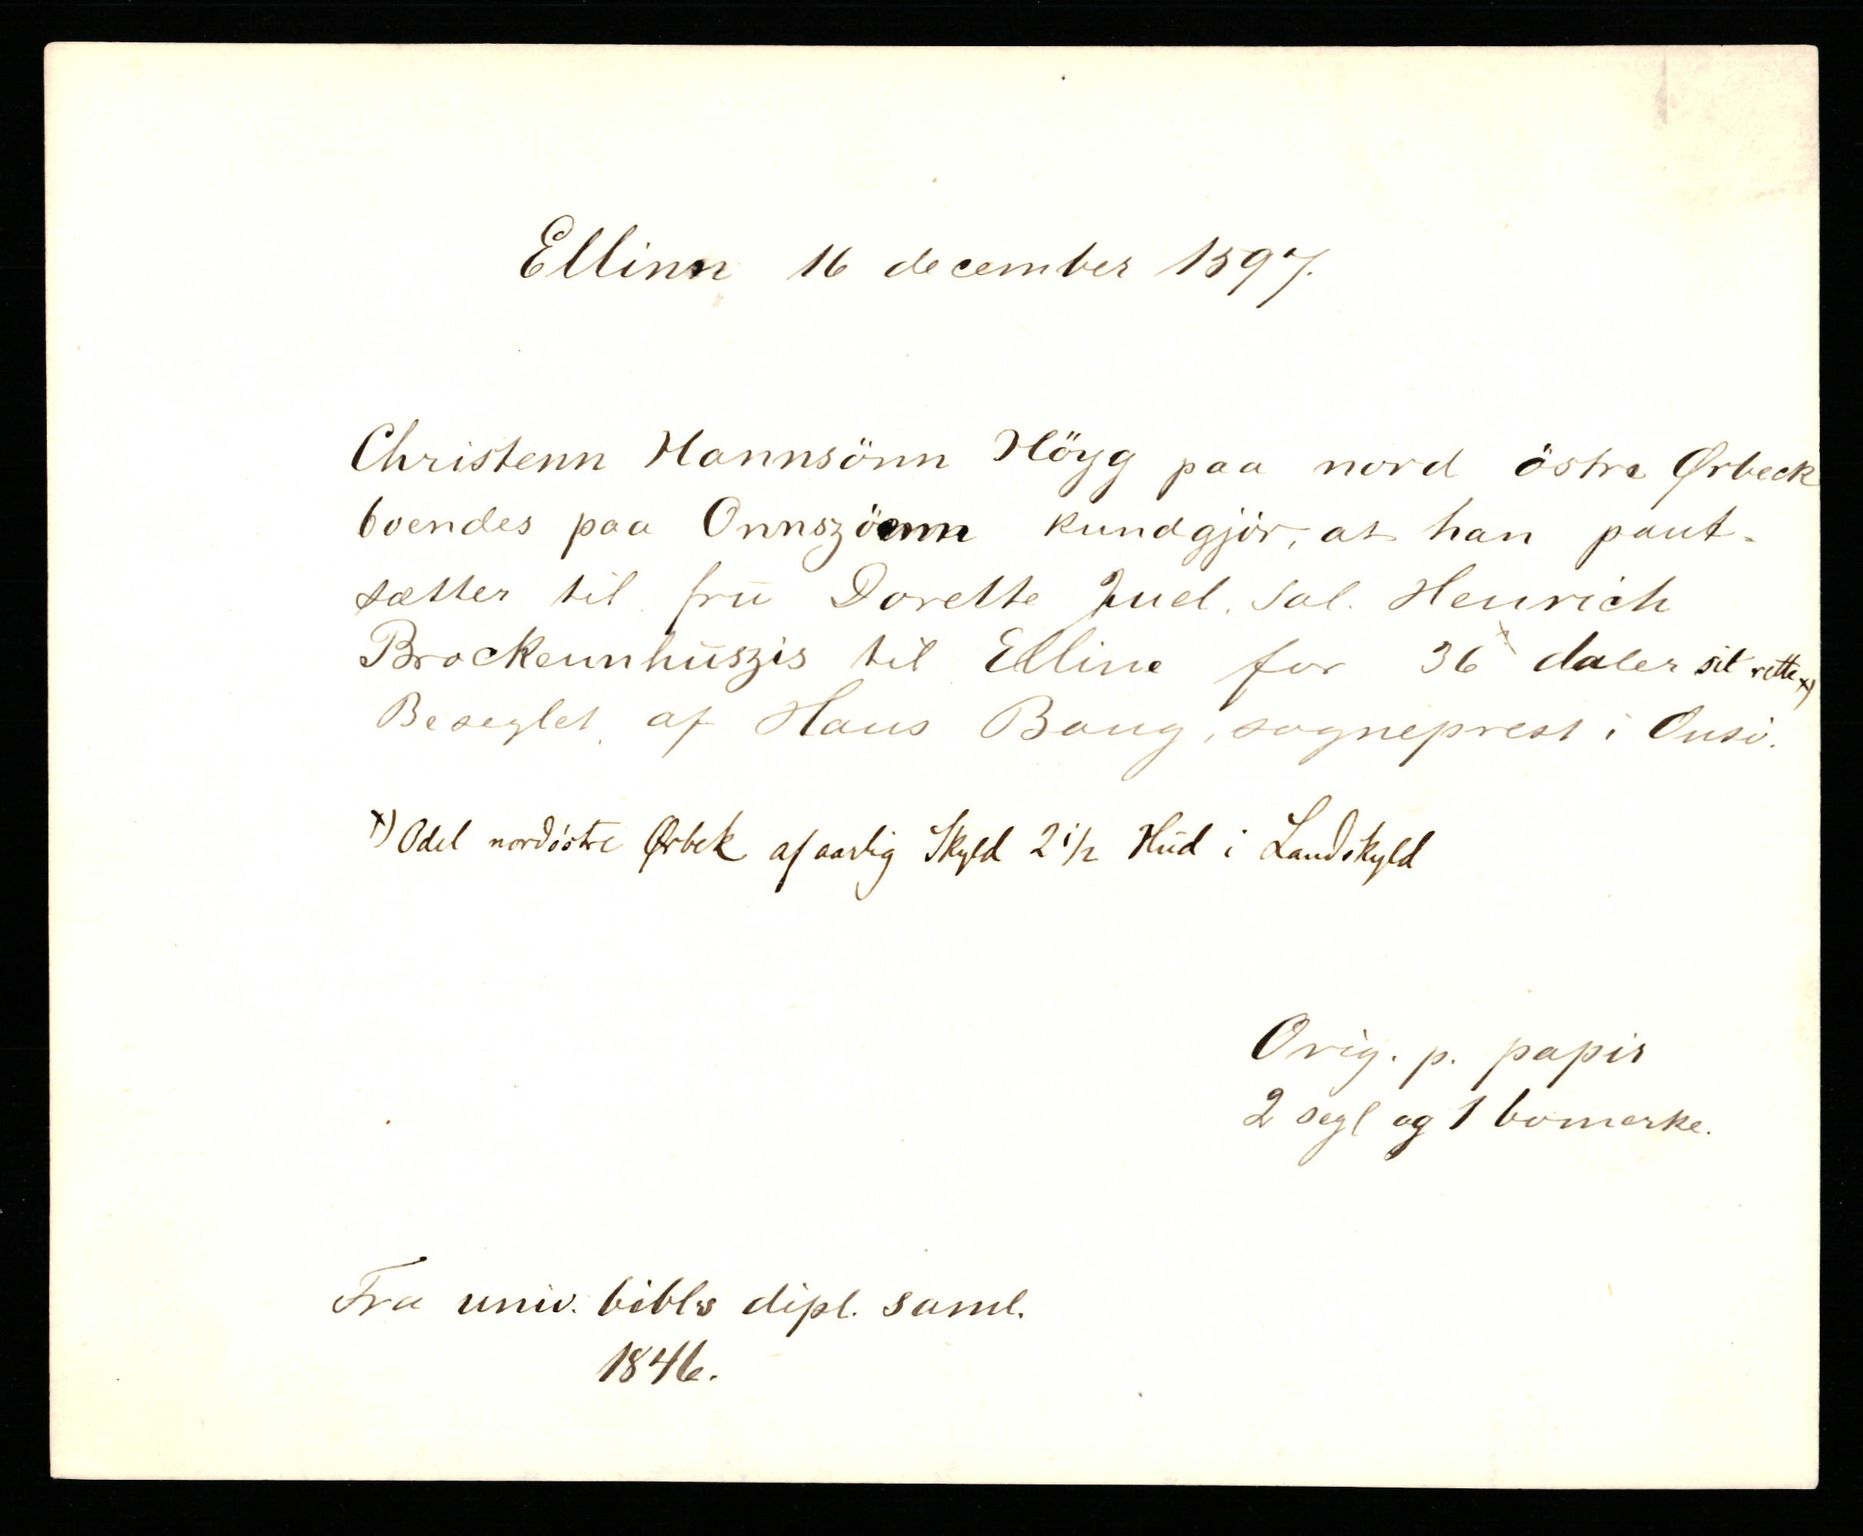 Ellinn 16 december 1597.
Christenn Hannsönn Höyg paa nord östre Ørbeck
boendes paa Onnszöenn kundgjör, at han pant-
sætter til fru Dorette Juel, sal. Henrich
Brockennhuszis til Elline for 36 daler sit rette x)
Beseglet af Hans Bang, sogneprest i Onsö.
x) Odel nordöstre Ørbek af aarlig Skyld 2 1/2 Hud i Landskyld
Orig. p. papir
2 segl og 1 bomerke.
Fra univ. bibls dipl. saml.
1846.